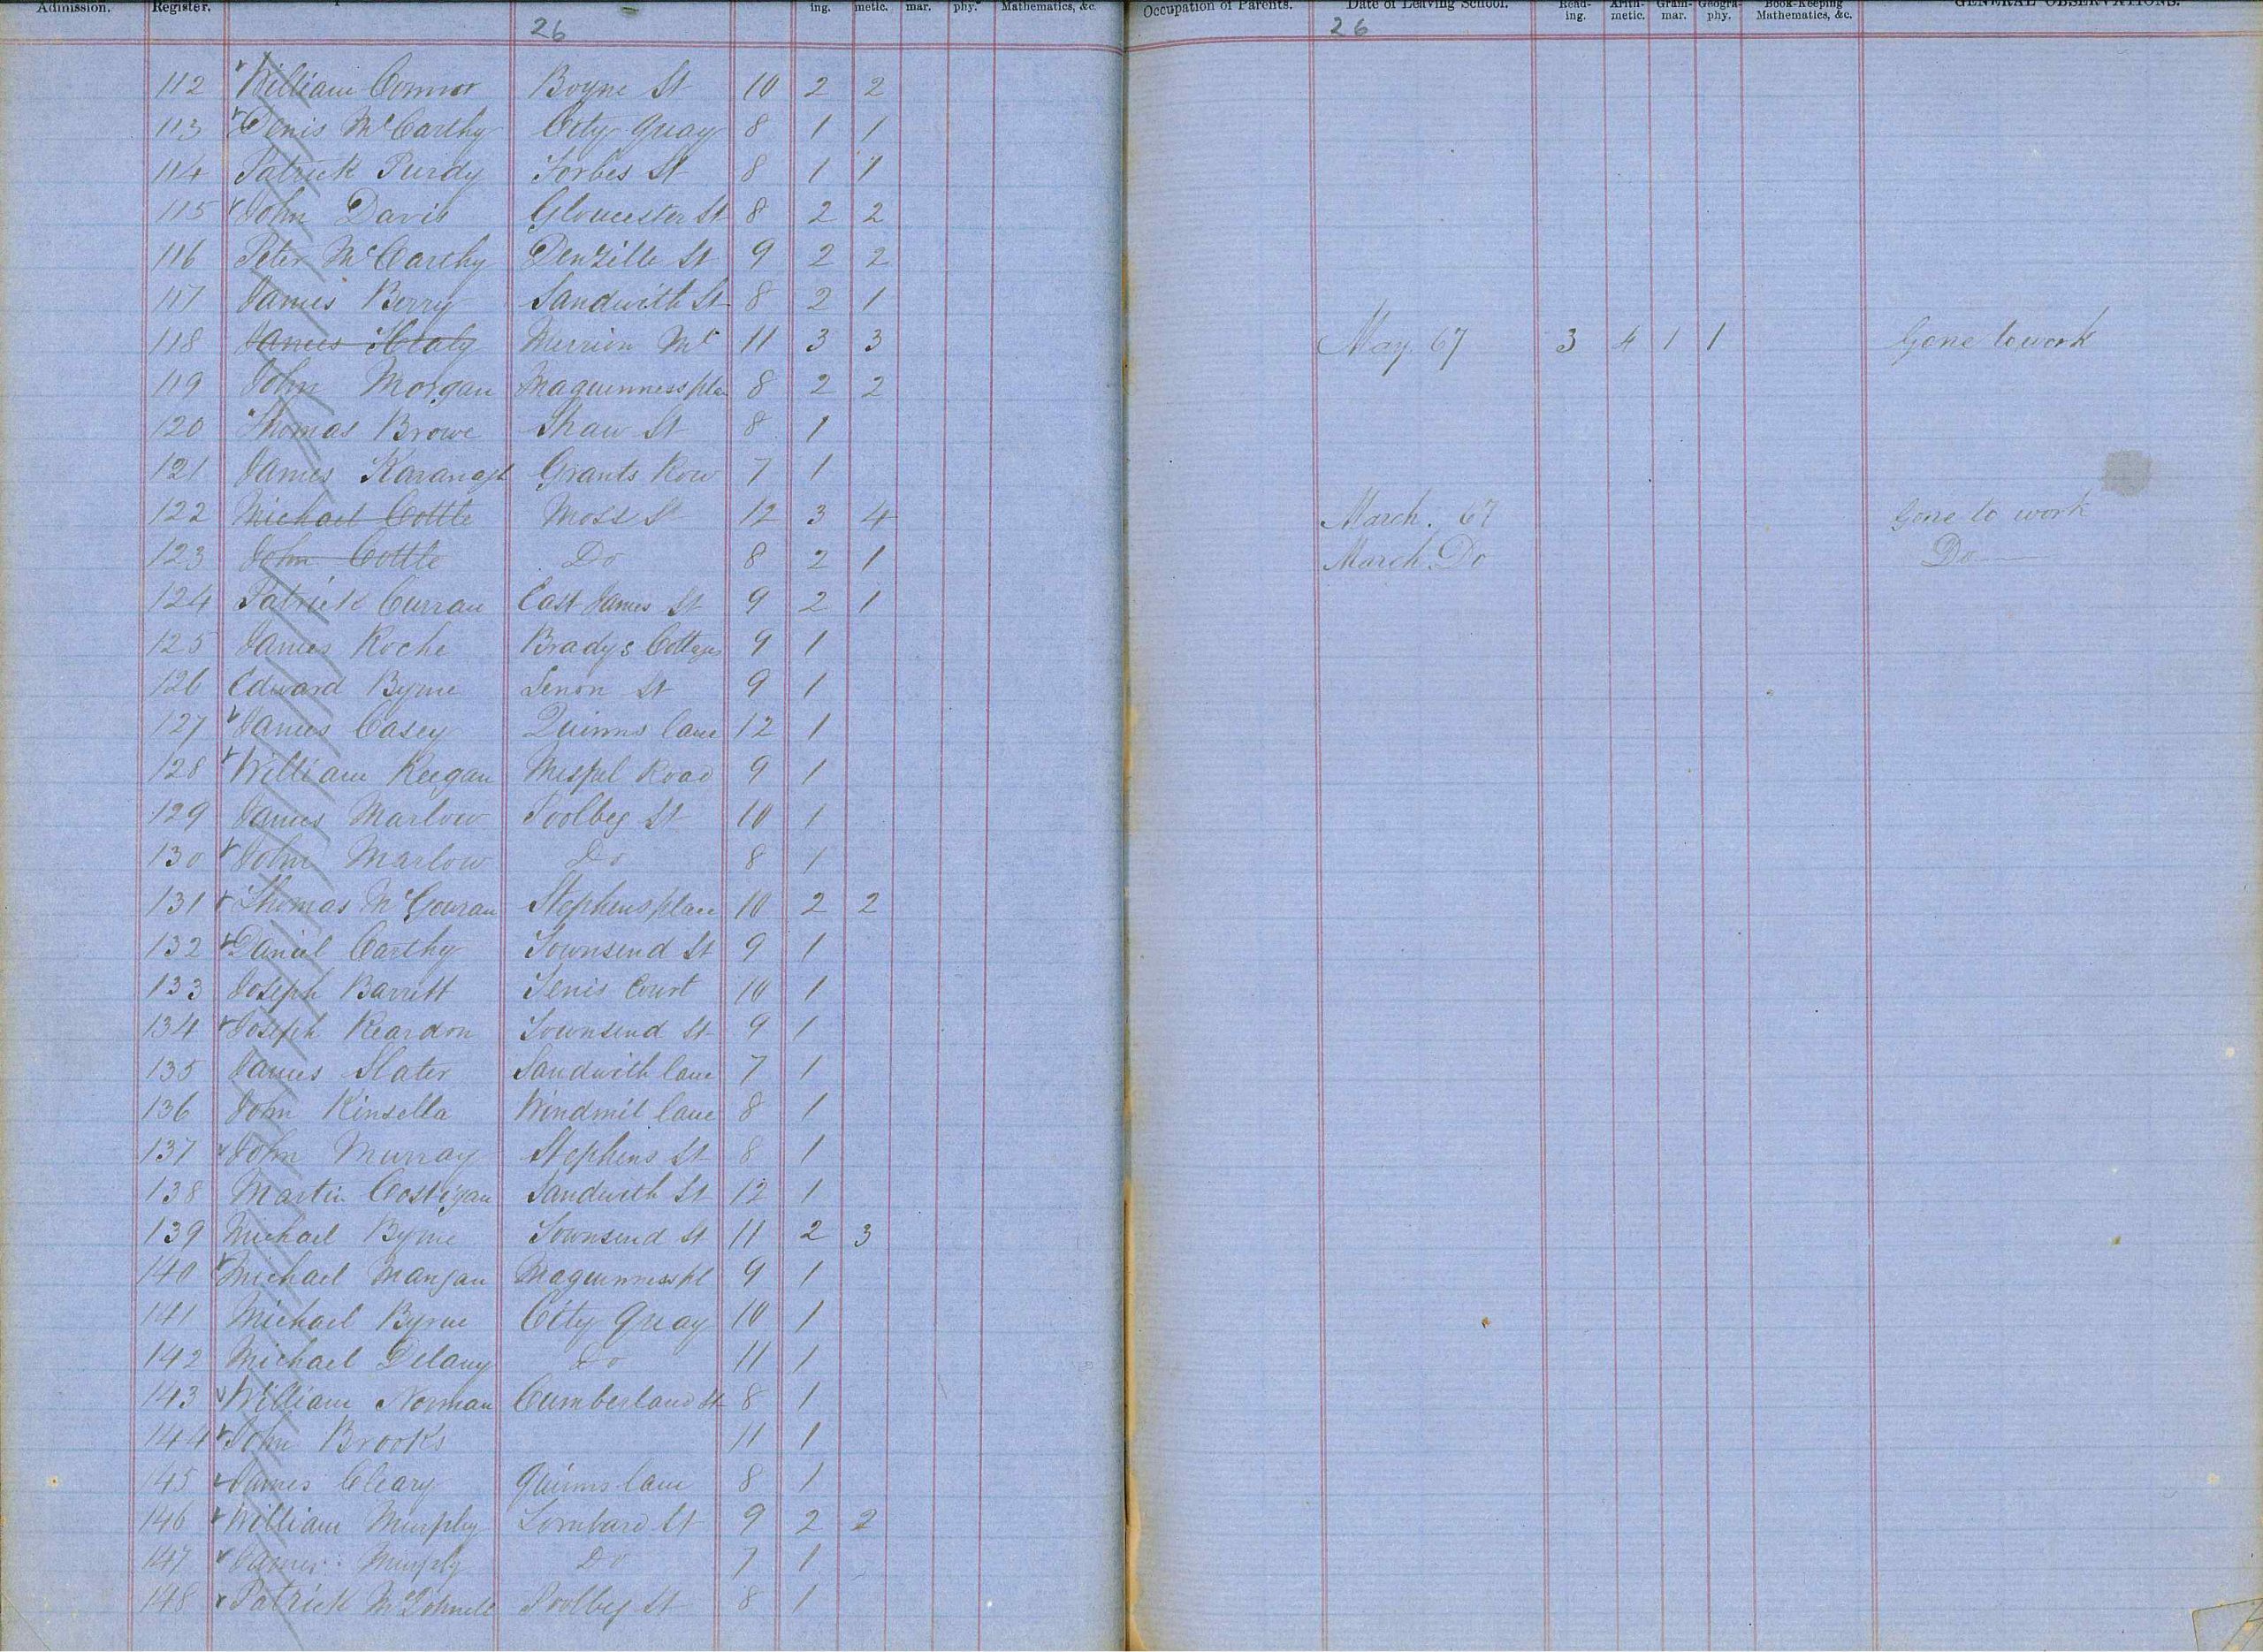 Admission. Register. ing. metic. mar. phy. Mathematics, &c. Occupation of Parents. Date of Leaving School. Read-ing. Arith-metic. Gram-mar. Geogra-phy. Book-Keeping Mathematics, &c. GENERAL OBSERVATIONS.
26 26
112 William Connor Boyne St 10 2 2
113 Denis McCarthy City Quay 8 1 1
114 Patrick Purdy Forbes St 8 1 1
115 John Davis Gloucester St 8 2 2
116 Peter McCarthy Denzille St 9 2 2
117 James Berry Sandwith St 8 2 1
118 James Healy Merrion 11 3 3 May 67 3 4 1 1 Gone to work
119 John Morgan Maguinness place 8 2 2
120 Thomas Browe Shaw St 8 1
121 James Kavanagh Grants Row 7 1
122 Michael Cottle Moss St 12 3 4 March. 67 Gone to work
123 John Cottle Do 8 2 1 March. Do Do
124 Patrick Curran East James St 9 2 1
125 James Roche Bradys Cottages 9 1
126 Edward Byrne Lenon St 9 1
127 James Casey Quinns lane 12 1
128 William Keegan Mespil Road 9 1
129 James Marlow Poolbeg St 10 1
130 John Marlow Do 8 1
131 Thomas McGouran Stephens place 10 2 2
132 Daniel Carthy Townsend St 9 1
133 Joseph Barrett Tenis Court 10 1
134 Joseph Reardon Townsend St 9 1
135 James Slater Sandwith lane 7 1
136 John Kinsella Windmil lane 8 1
137 John Murray Stephens St 8 1
138 Martin Costigan Sandwith St 12 1
139 Michael Byrne Townsend St 11 2 3
140 Michael Mangan Maguinness pl 9 1
141 Michael Byrne City Quay 10 1
142 Michael Delany Do 11 1
143 William Norman Cumberland St 8 1
144 John Brooks 11 1
145 James Cleary Quinns lane 8 1
146 William Murphy Lombard St 9 2 2
147 James Murphy Do 7 1
148 Patrick Poolbeg St 8 1